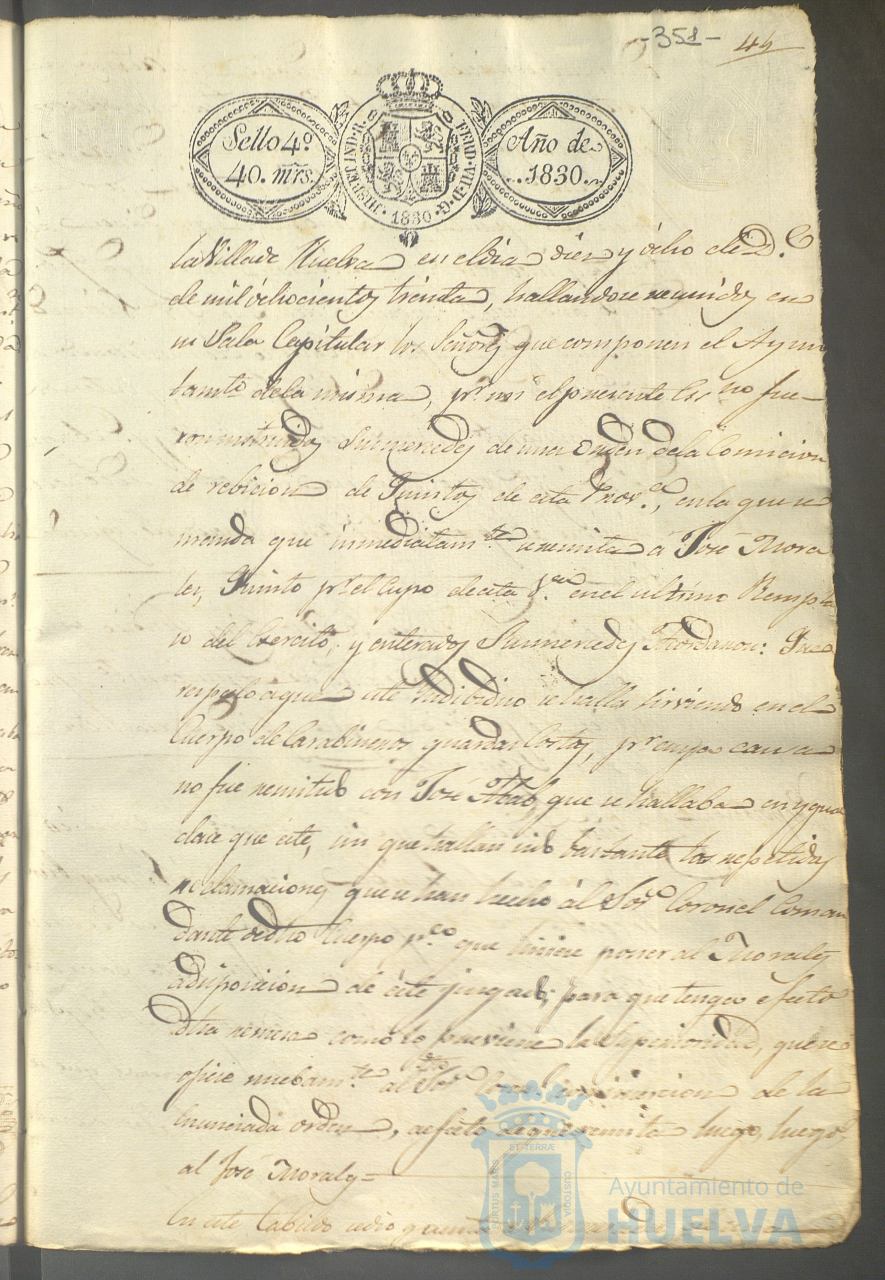 -351-
44
Sello 4º
40. mrs.
HISP. ET IND. R. FERD. VII. D. G. 1830
Año de
1830.
la Villa de Huelva en el dia diez y ócho de D.e
de mil óchocientos treinta, hallandose reunidos en
su Sala Capitular los Señores que componen el Ayun
tamto de la misma, pr. mi el presente Esno fue-
ron instruidos Sus mercedes de una Orden de la Comicion
de rebicion de Quintos de esta Prova, en la que se
manda que inmediatamte se remita á José Mora
les, Quinto pr. el Cupo de esta Va en el ultimo Rempla
so del Exército, y enterados Sus mercedes Acordaron: Que
respecto á que este Individuo se halla sirviendo en el
Cuerpo de Carabineros guarda Costas, pr. cuya causa
no fue remitido con José que se hallaba en ygual
clase que éste, sin que hallan sido bastante las repetidas
reclamaciones que se han hecho ál Sor. Coronel Coman
dante de dho Cuerpo pa que hiciese poner al Morales
á disposicion de éste juzgado; para que tenga efecto
dha remesa como lo previene la Superioridad, que se
oficie nuebamte al dho Sor. con insercion de la
enunciada orden, a efecto de que remita luego, luego,
al José Morales=
En este Cabildo se dio cuenta
PORTUS MARIS ET TERRÆ CUSTODIA
Ayuntamiento de
HUELVA